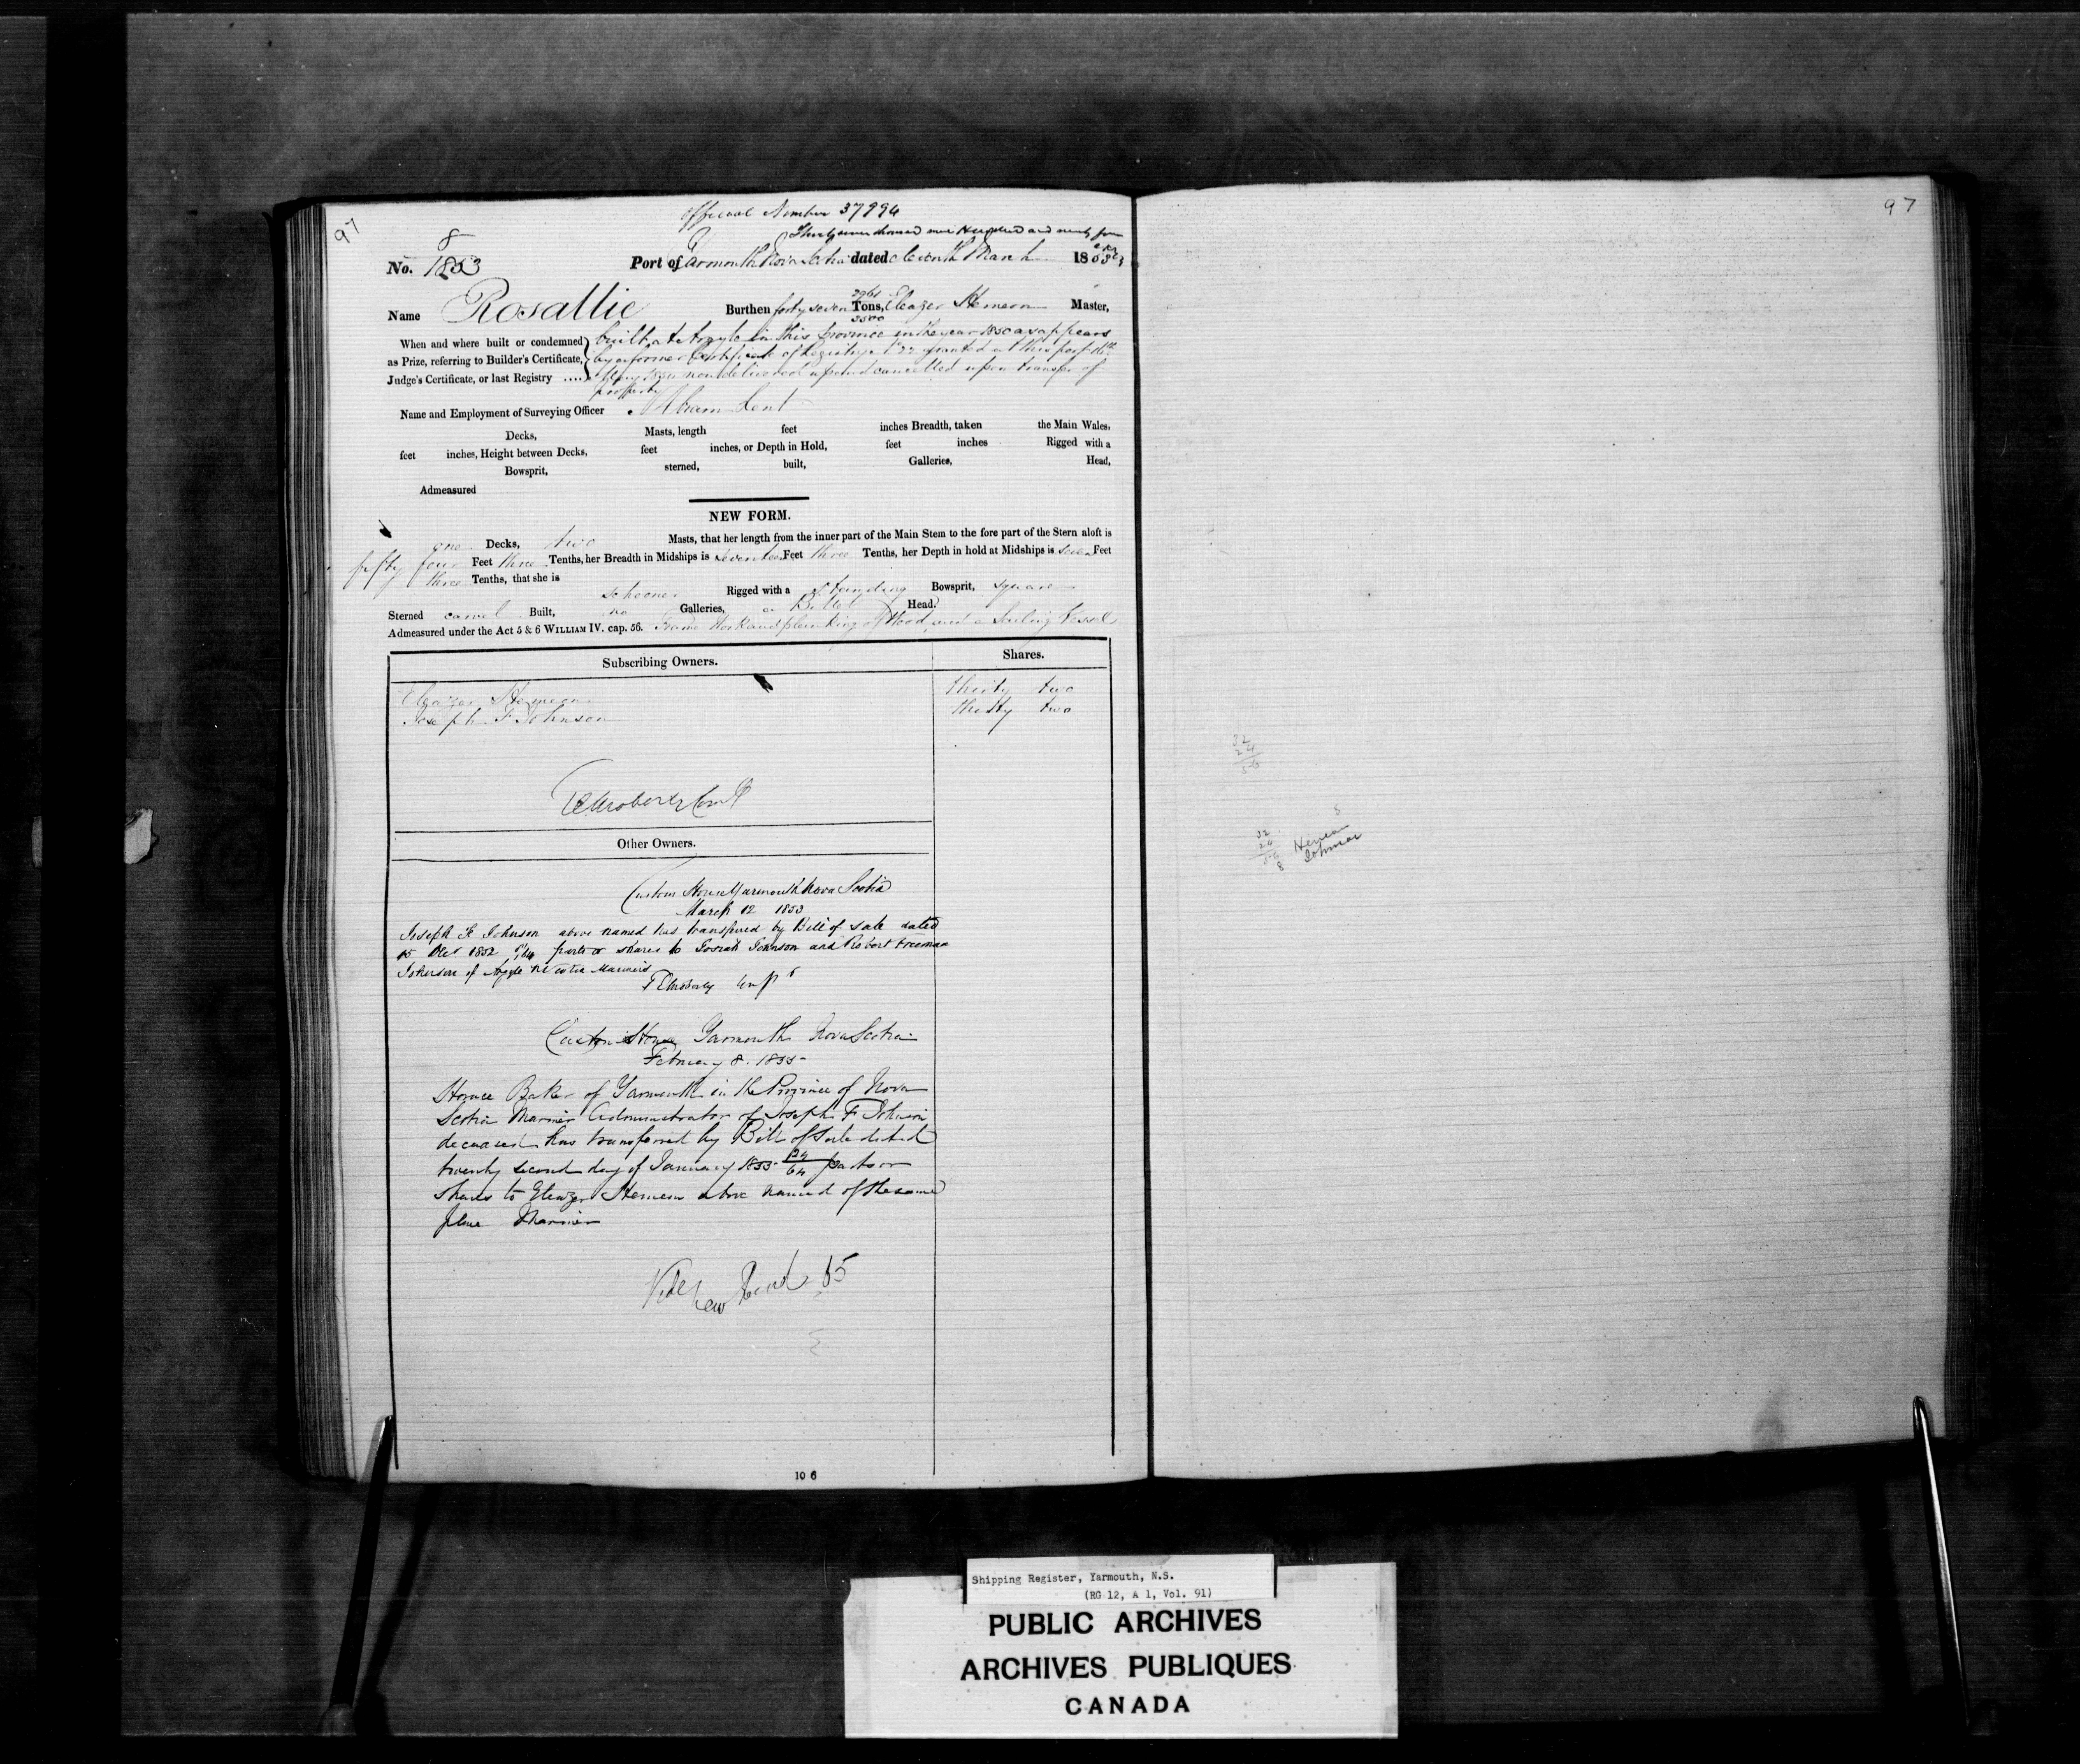 97
Official Number 37994
Thirty seven thousand nine Hundred and ninety four
No. 8 1853
Port of Yarmouth Nova Scotia dated eleventh March 1853
Name Rosallie Burthen forty seven 2961/3500 Tons, Eleazer Hemeon Master,
When and where built or condemned as Prize, referring to Builder's Certificate, Judge's Certificate, or last Registry
built at Argyle in this Province in the year 1850 as appears
by a former Certificate of Registry No 22 granted at this port
May 1850 now delivered up and cancelled upon transfer of
property
Name and Employment of Surveying Officer Abram Lent
Decks, Masts, length feet inches Breadth, taken the Main Wales,
feet inches, Height between Decks, feet inches, or Depth in Hold, feet inches Rigged with a
Bowsprit, sterned, built, Galleries, Head,
Admeasured
NEW FORM.
one Decks, two Masts, that her length from the inner part of the Main Stem to the fore part of the Stern aloft is
fifty four Feet three Tenths, her Breadth in Midships is seventeen Feet three Tenths, her Depth in hold at Midships is seven Feet
three Tenths, that she is
schooner Rigged with a standing Bowsprit, square
Sterned carvel Built, no Galleries, a Billet Head.
Admeasured under the Act 5 & 6 WILLIAM IV. cap. 56. Frame Work and planking of Wood, and a Sailing Vessel
Subscribing Owners. Shares.
Eleazer Hemeon thirty two
Joseph F Johnson thirty two
Other Owners.
Custom House Yarmouth Nova Scotia
March 12 1853
Joseph F Johnson above named has transferred by Bill of Sale dated
15 Dec 1852 8/64 parts or shares to Josiah Johnson and Robert Freeman
Johnson of Argyle N Scotia Mariners
Custom House Yarmouth Nova Scotia
February 8. 1855
Horace Baker of Yarmouth in the Province of Nova
Scotia Mariner Administrator of Joseph F Johnson
deceased has transferred by Bill of Sale dated
twenty second day of January 1855 24/64 parts or
shares to Eleazer Hemeon above named of the same
place Mariner
Vide New Book 65
10 6
97
32
24
56
8
32
24
56
8
Hemeon
Johnson
Shipping Register, Yarmouth, N.S.
(RG 12, A 1, Vol. 91)
PUBLIC ARCHIVES
ARCHIVES PUBLIQUES
CANADA